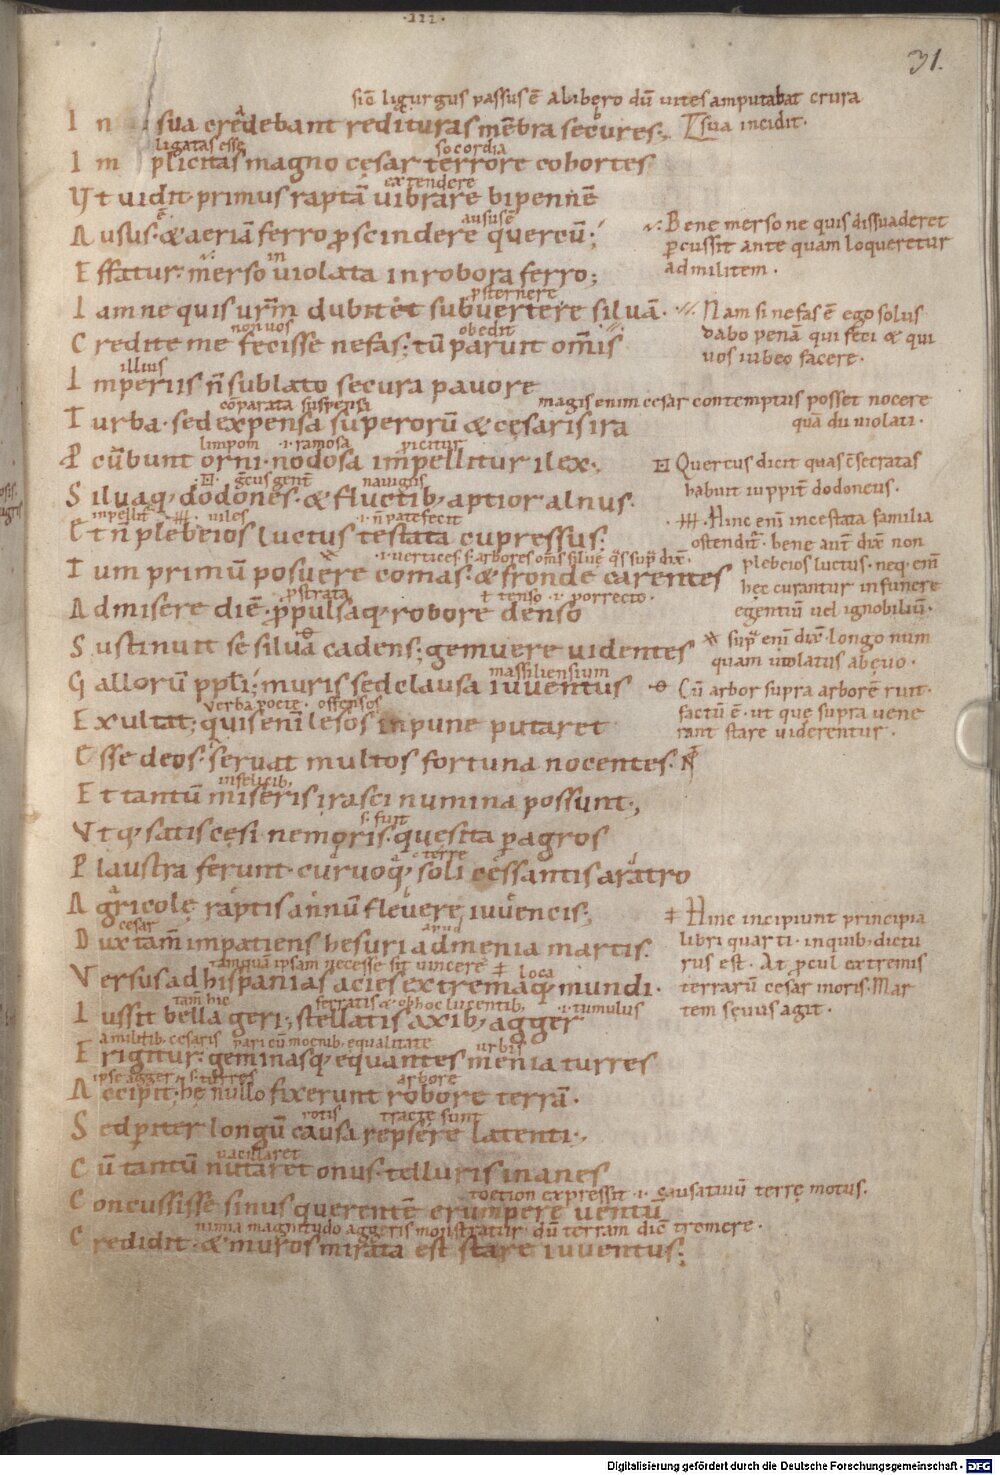 ·III·
31.
siē ligurgus passus ē Alibero dū uites amputabat crura
In sua credebant redituras mēbra secures.
sua incidit·
ligatas esse socordia
Implicitas magno cęsar terrore cohortes
extendere
Vt uidit primus raptā uibrare bipennē
ē ausus ē
Ausus· & aeriā ferro proscindere quercū;
Bene merso ne quis dissuaderet
percussit ante quam loqueretur
admilitem·
in
Effatur· merso uiolata inrobora ferro;
psternere
Iamne quis urm̄ dubitet subuertere siluā·
Nam si nefas ē ego solus
dabo penā qui feci & qui
uos iubeo facere·
non uos obedit
Credite me fecisse nefas; tū paruit om̄is
illius
Imperiis n̄ sublato secura pauore
magis enim cesar contemptus posset nocere
quā du uiolati·
cōparata suspensa
Turba· sed expensa superorū & cęsaris ira
limpom ·i· ramosa picitur
Pcūbunt orni· nodosa impellitur ilex·
Quercus dicit quas c̄secratas
habuit iuppit̄ dodoneus·
gcus gent̄ nauigiis
Siluaq; dodones· & fluctib; aptior alnus·
inpellit̄ uiles ·i· n̄ patefecit
Et n̄ plebeios luctus testata cupressus·
Hinc eni incestata familia
ostendit̄· bene aut̄ dix̄ non
plebeios luctus· neq· em̄
hęc curantur in funere
egentiū uel ignobiliū·
·i· uertices· s· arbores om̄s siluę q̄s sup̄ dix̄·
Tum primū posuere comas· & fronde carentes
pstrata ł tenso ·i· porrecto·
Admisere diē· propulsaq; robore denso
Sustinuit se silua cadens; gemuere uidentes
sup̄ eni dix̄ longo num
quam uiolatus ab ęuo·
massiliensium
Gallorū ppli; muris sed clausa iuuentus
Cū arbor supra arborē ruit·
factū ē· ut quę supra uene
rant stare uiderentur·
Verba poete· offensos
Exultat; quis eni lesos inpune putaret
Esse deos· seruat multos fortuna nocentes·
infelicib;
Et tantū miseris irasci numina possunt·,
s· fuit
Vtq; satis cęsi nemoris· quesita p agros
terre
Plaustra ferunt· curuoq; soli cessantis aratro
Agricolę raptis annū fleuere iuuencis;
cesar apud
Dux tam̄ impatiens hesuri ad menia martis·
Hinc incipiunt principia
libri quarti· inquib; dictu
rus est· At procul extremis
terrarū cesar moris· Mar
tem sęuus agit·
tamquā ipsam necesse sit uincere loca
Versus ad hispanias acies extremaq; mundi·
tam hic ferratis & ob hoc lucentib; ·i· tumulus
Iussit bella geri; stellatis axib; agger
a militib; cesaris pari cū moenib; equalitate urbis
Erigitur· geminasq; equantes menia turres
ipse agger s· turres arbore
Accipit· hę nullo fixerunt robore terrā·
rotis tracte sunt
Sed piter longū causa repsere latenti·
uacillaret
Cū tantū nutaret onus· telluris inanes
toction expressit ·i· causatiuū terrę motus·
Concussisse sinus querentē erumpere uentū
nimia magnitudo aggeris monstratur· dū terram dic̄ tremere·
Credidit· & muros mirata est stare iuuentus;
Digitalisierung gefördert durch die Deutsche Forschungsgemeinschaft - DFG